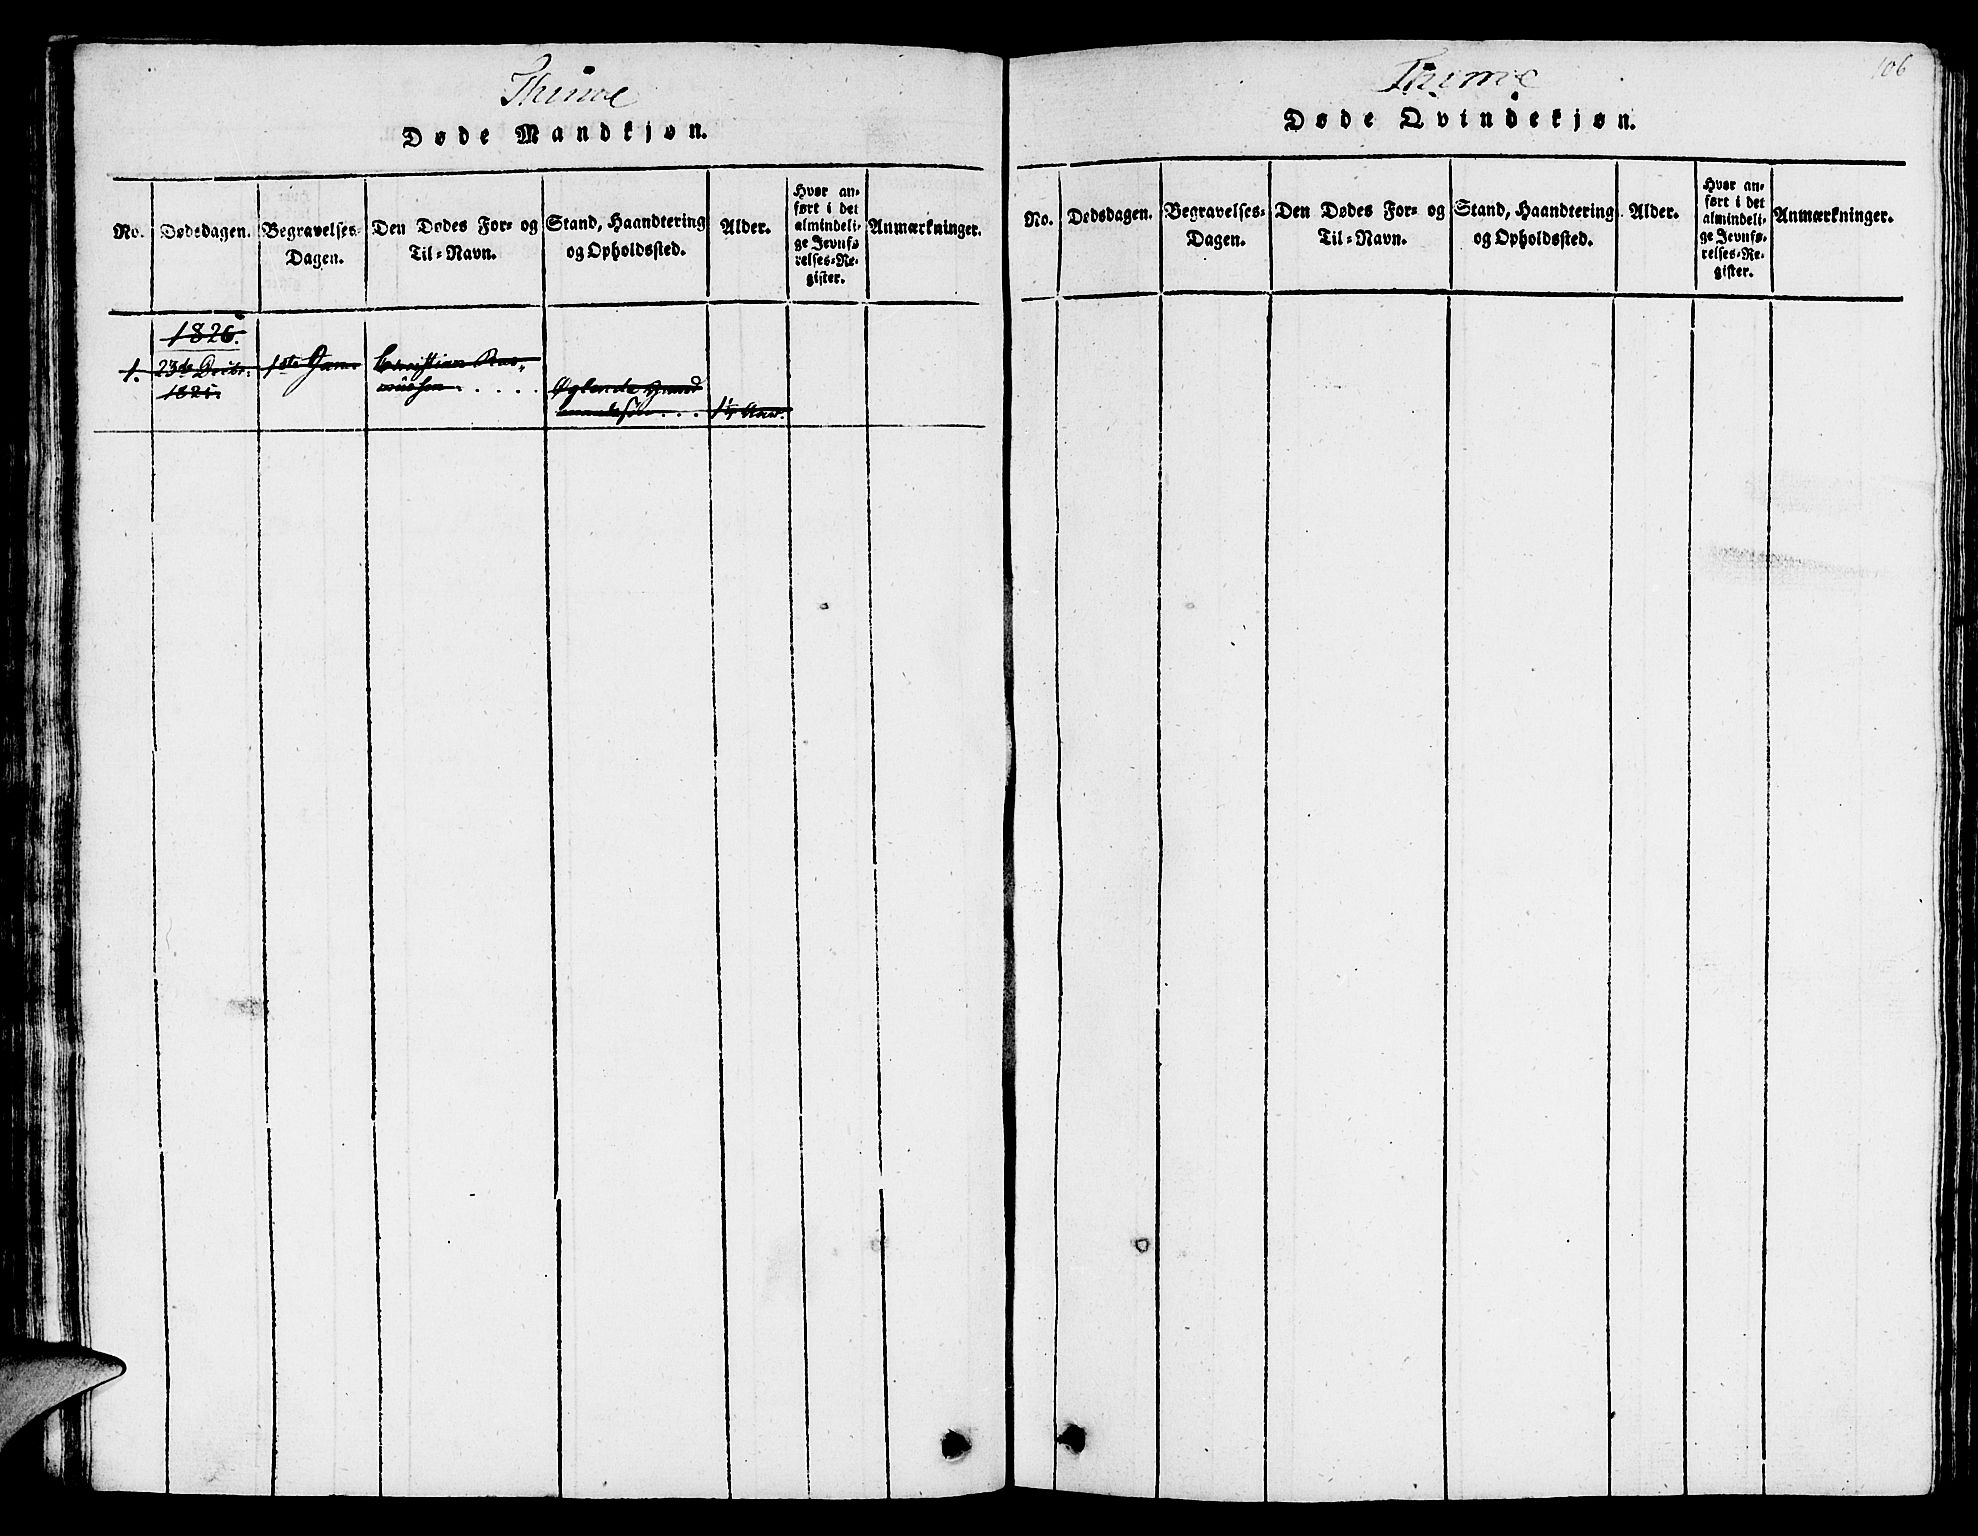 Thime
Døde Mandkjøn.
No.
Dødsdagen.
Begravelses-
Dagen.
Den Dødes For- og
Til-Navn.
Stand, Haandtering
og Opholdssted.
Alder.
Hvor an-
ført i det
almindeli-
ge Jevnfø-
relses-Re-
gister.
Anmærkninger.
1826.
1. 23de Decbr. 1ste Janv. Christian Ras-
1825. mussen. . . . .
Øglende
. . .
Thime
106
Døde Qvindekjøn.
No.
Dødsdagen.
Begravelses-
Dagen.
Den Dødes For- og
Til-Navn.
Stand, Haandtering
og Opholdssted.
Alder.
Hvor an-
ført i det
almindeli-
ge Jevnfø-
relses-Re-
gister.
Anmærkninger.